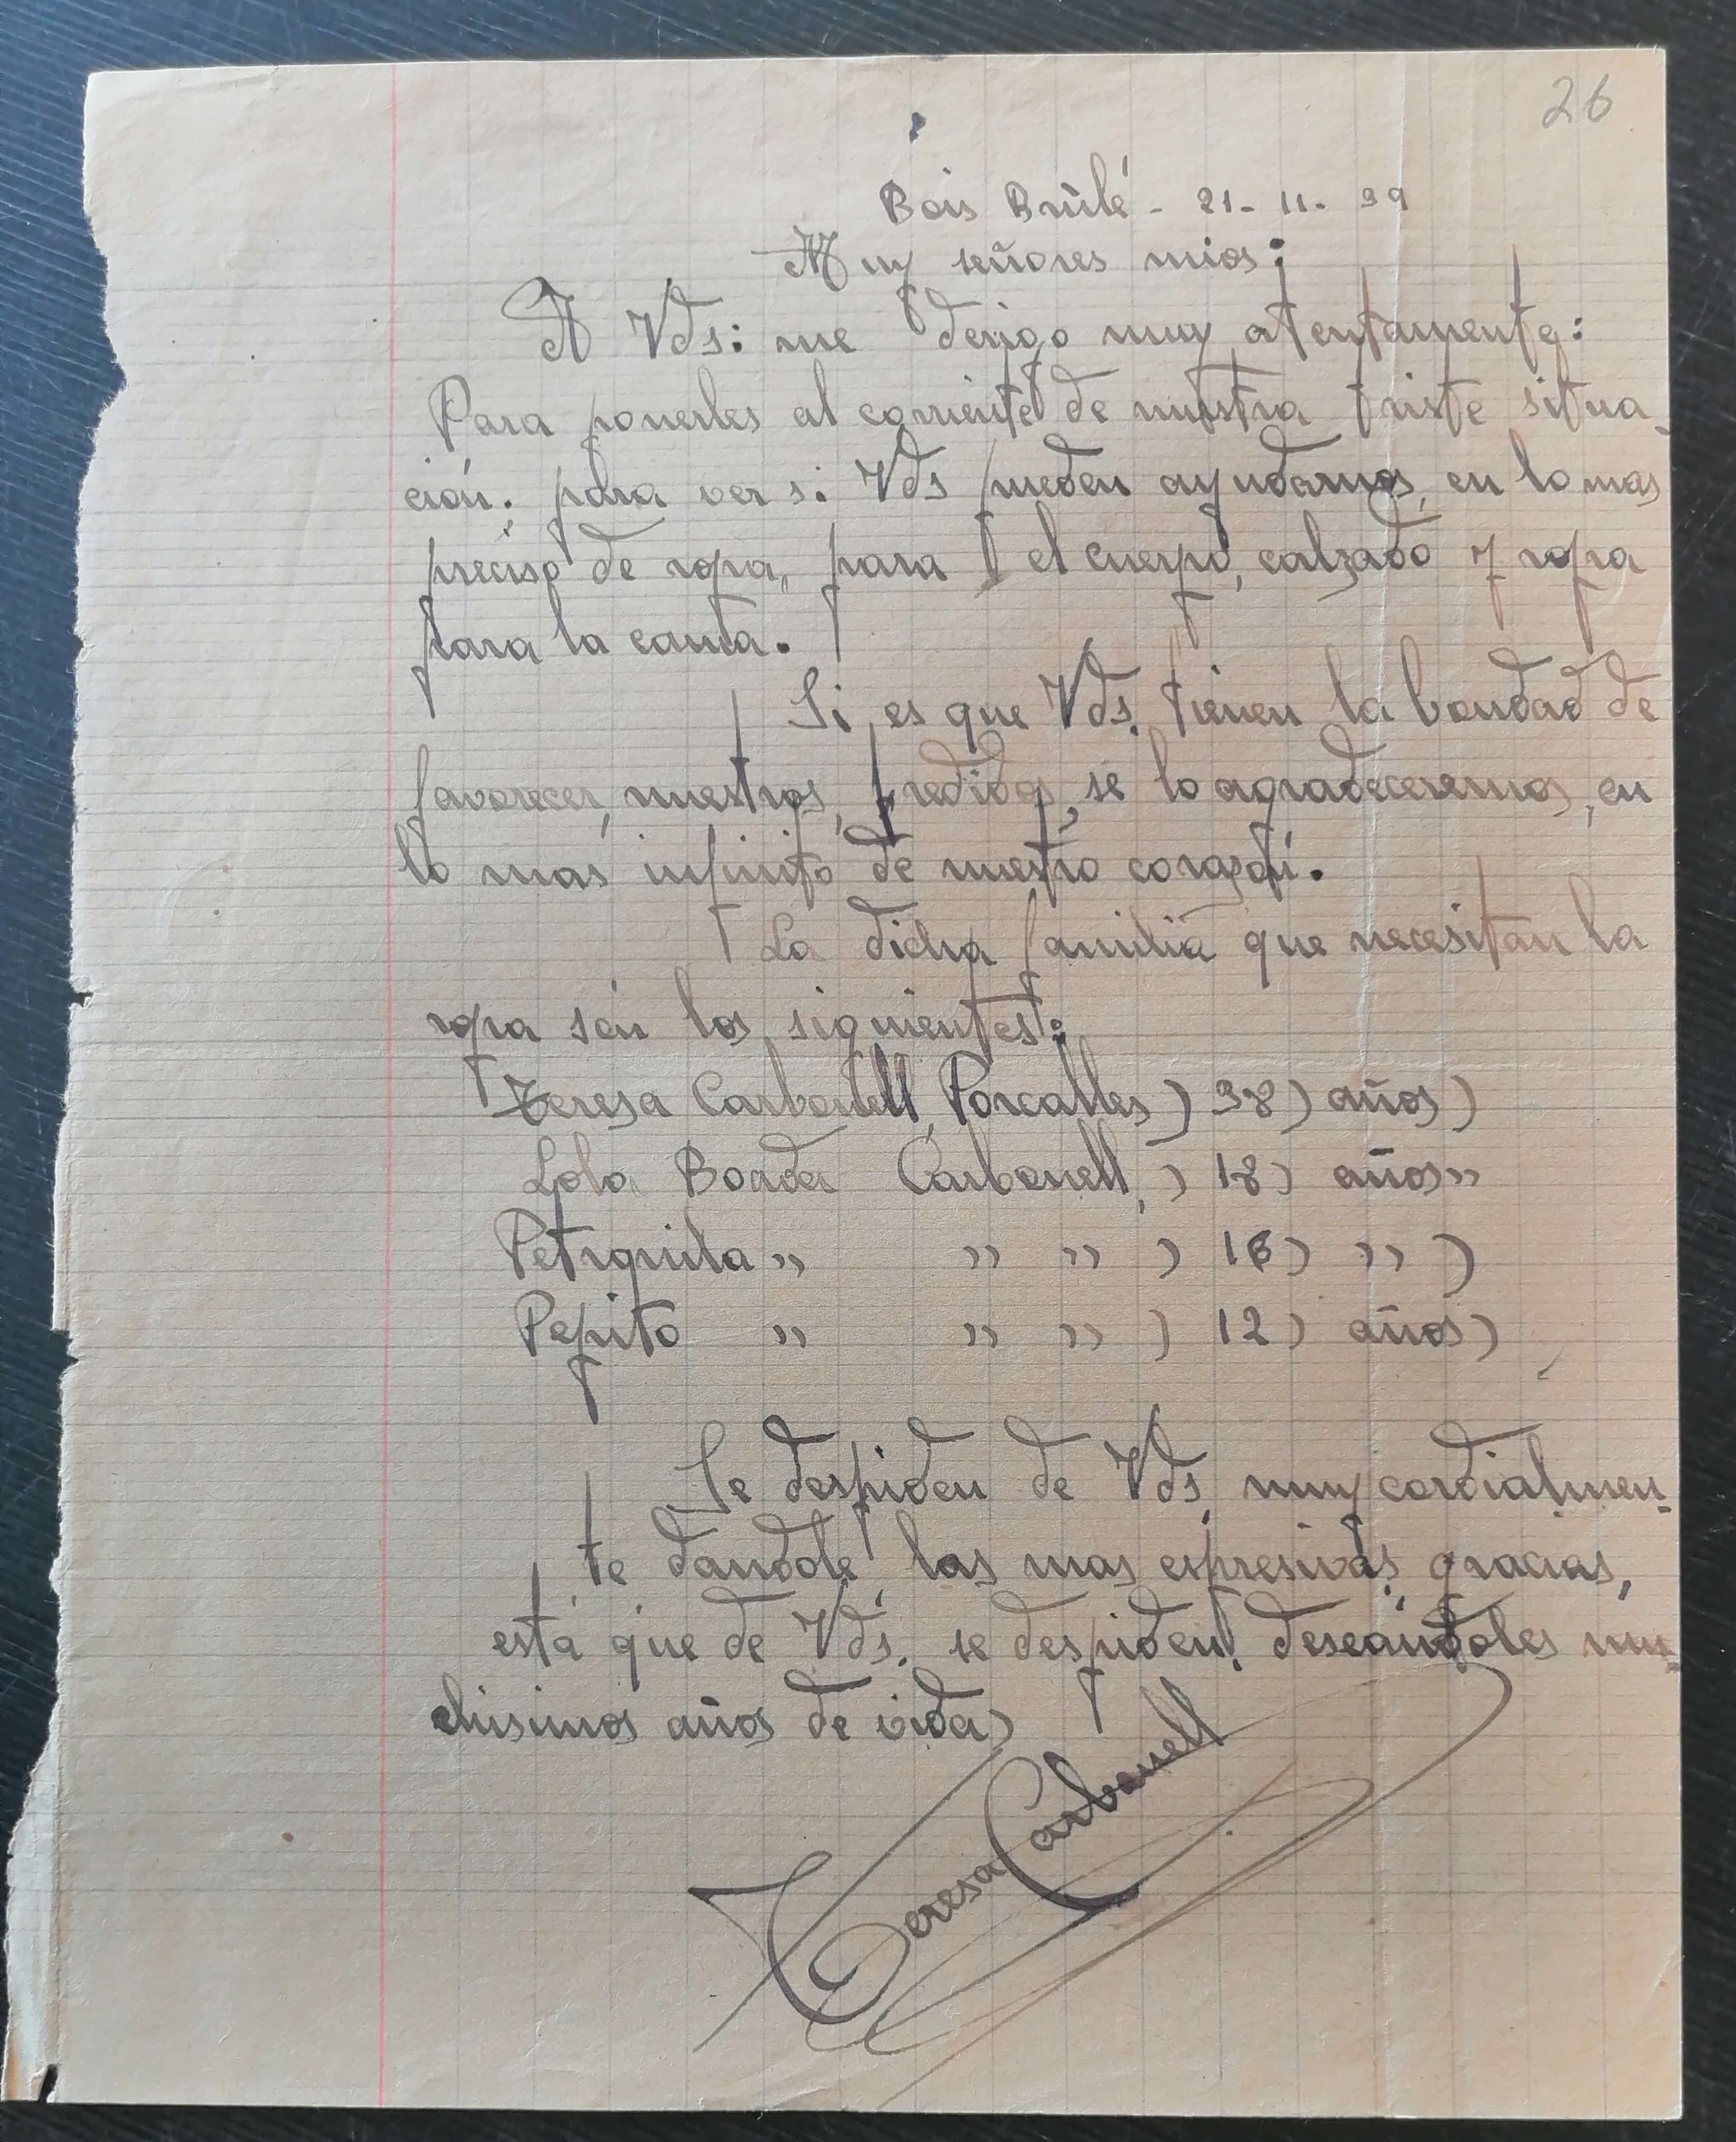 26
Bois Brûlé - 21 - 11 - 39
Muy señores mios:
A Vds: me derigo muy atentamente:
Para ponerles al corriente de nuestra triste situa-
ción; para ver si Vds pueden ayudarnos, en lo mas
preciso de ropa, para el cuerpo, calzado y ropa
para la cama.
Si es que Vds. tienen la bondad de
favorecer, nuestros, pedidos, se lo agradeceremos, en
lo mas infinito de nuestro corazón.
La dicha familia que necesitan la
ropa són los siguientes:
Teresa Carbonell, Porcalles) 38) años)
Lola Boada Carbonell, ) 18) años"
" " " ) 16) " )
Pepito " " " ) 12) años)
Se despiden de Vds, muy cordialmen-
te dandole las mas espresivas gracias,
está que de Vds. se despiden, deseándoles mu-
chisimos años de vida)
Teresa Carbonell